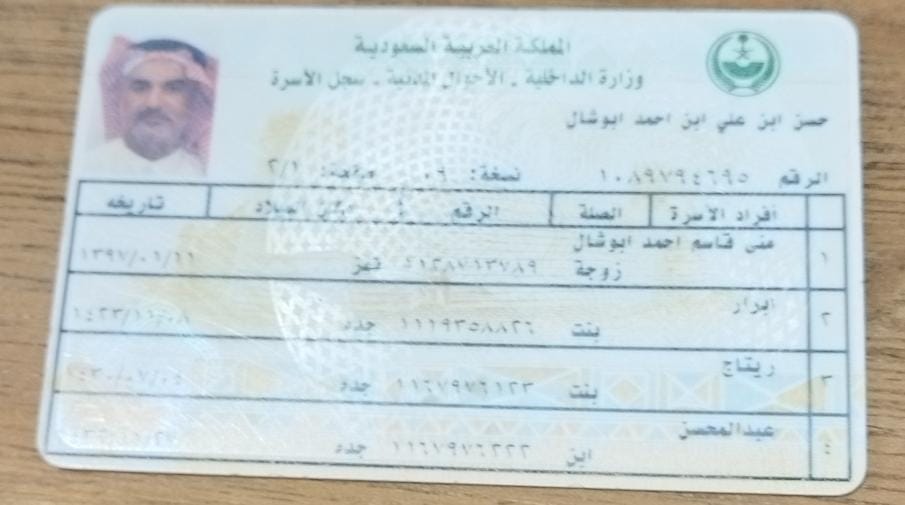 المملكة العربية السعودية
وزارة الداخلية - الأحوال المدنية - سجل الأسرة
حسن ابن علي ابن احمد ابوشال
الرقم ١٠٨٩٧٩٤٦٩٥ نسخة: ٠٩ صفحة: ٢/١
أفراد الأسرة الصلة الرقم مكان الميلاد تاريخه
١ منى قاسم احمد ابوشال
زوجة ١٣٩٧/٠١/١١
٢ ابرار
بنت ١١١٩٣٥٨٨٢٦ جدد
٣ ريتاج
بنت ١١٦٧٩٧٦١٢٣ جدد
٤ عبدالمحسن
ابن ١١٦٧٩٧٦٢٢٢ جدد